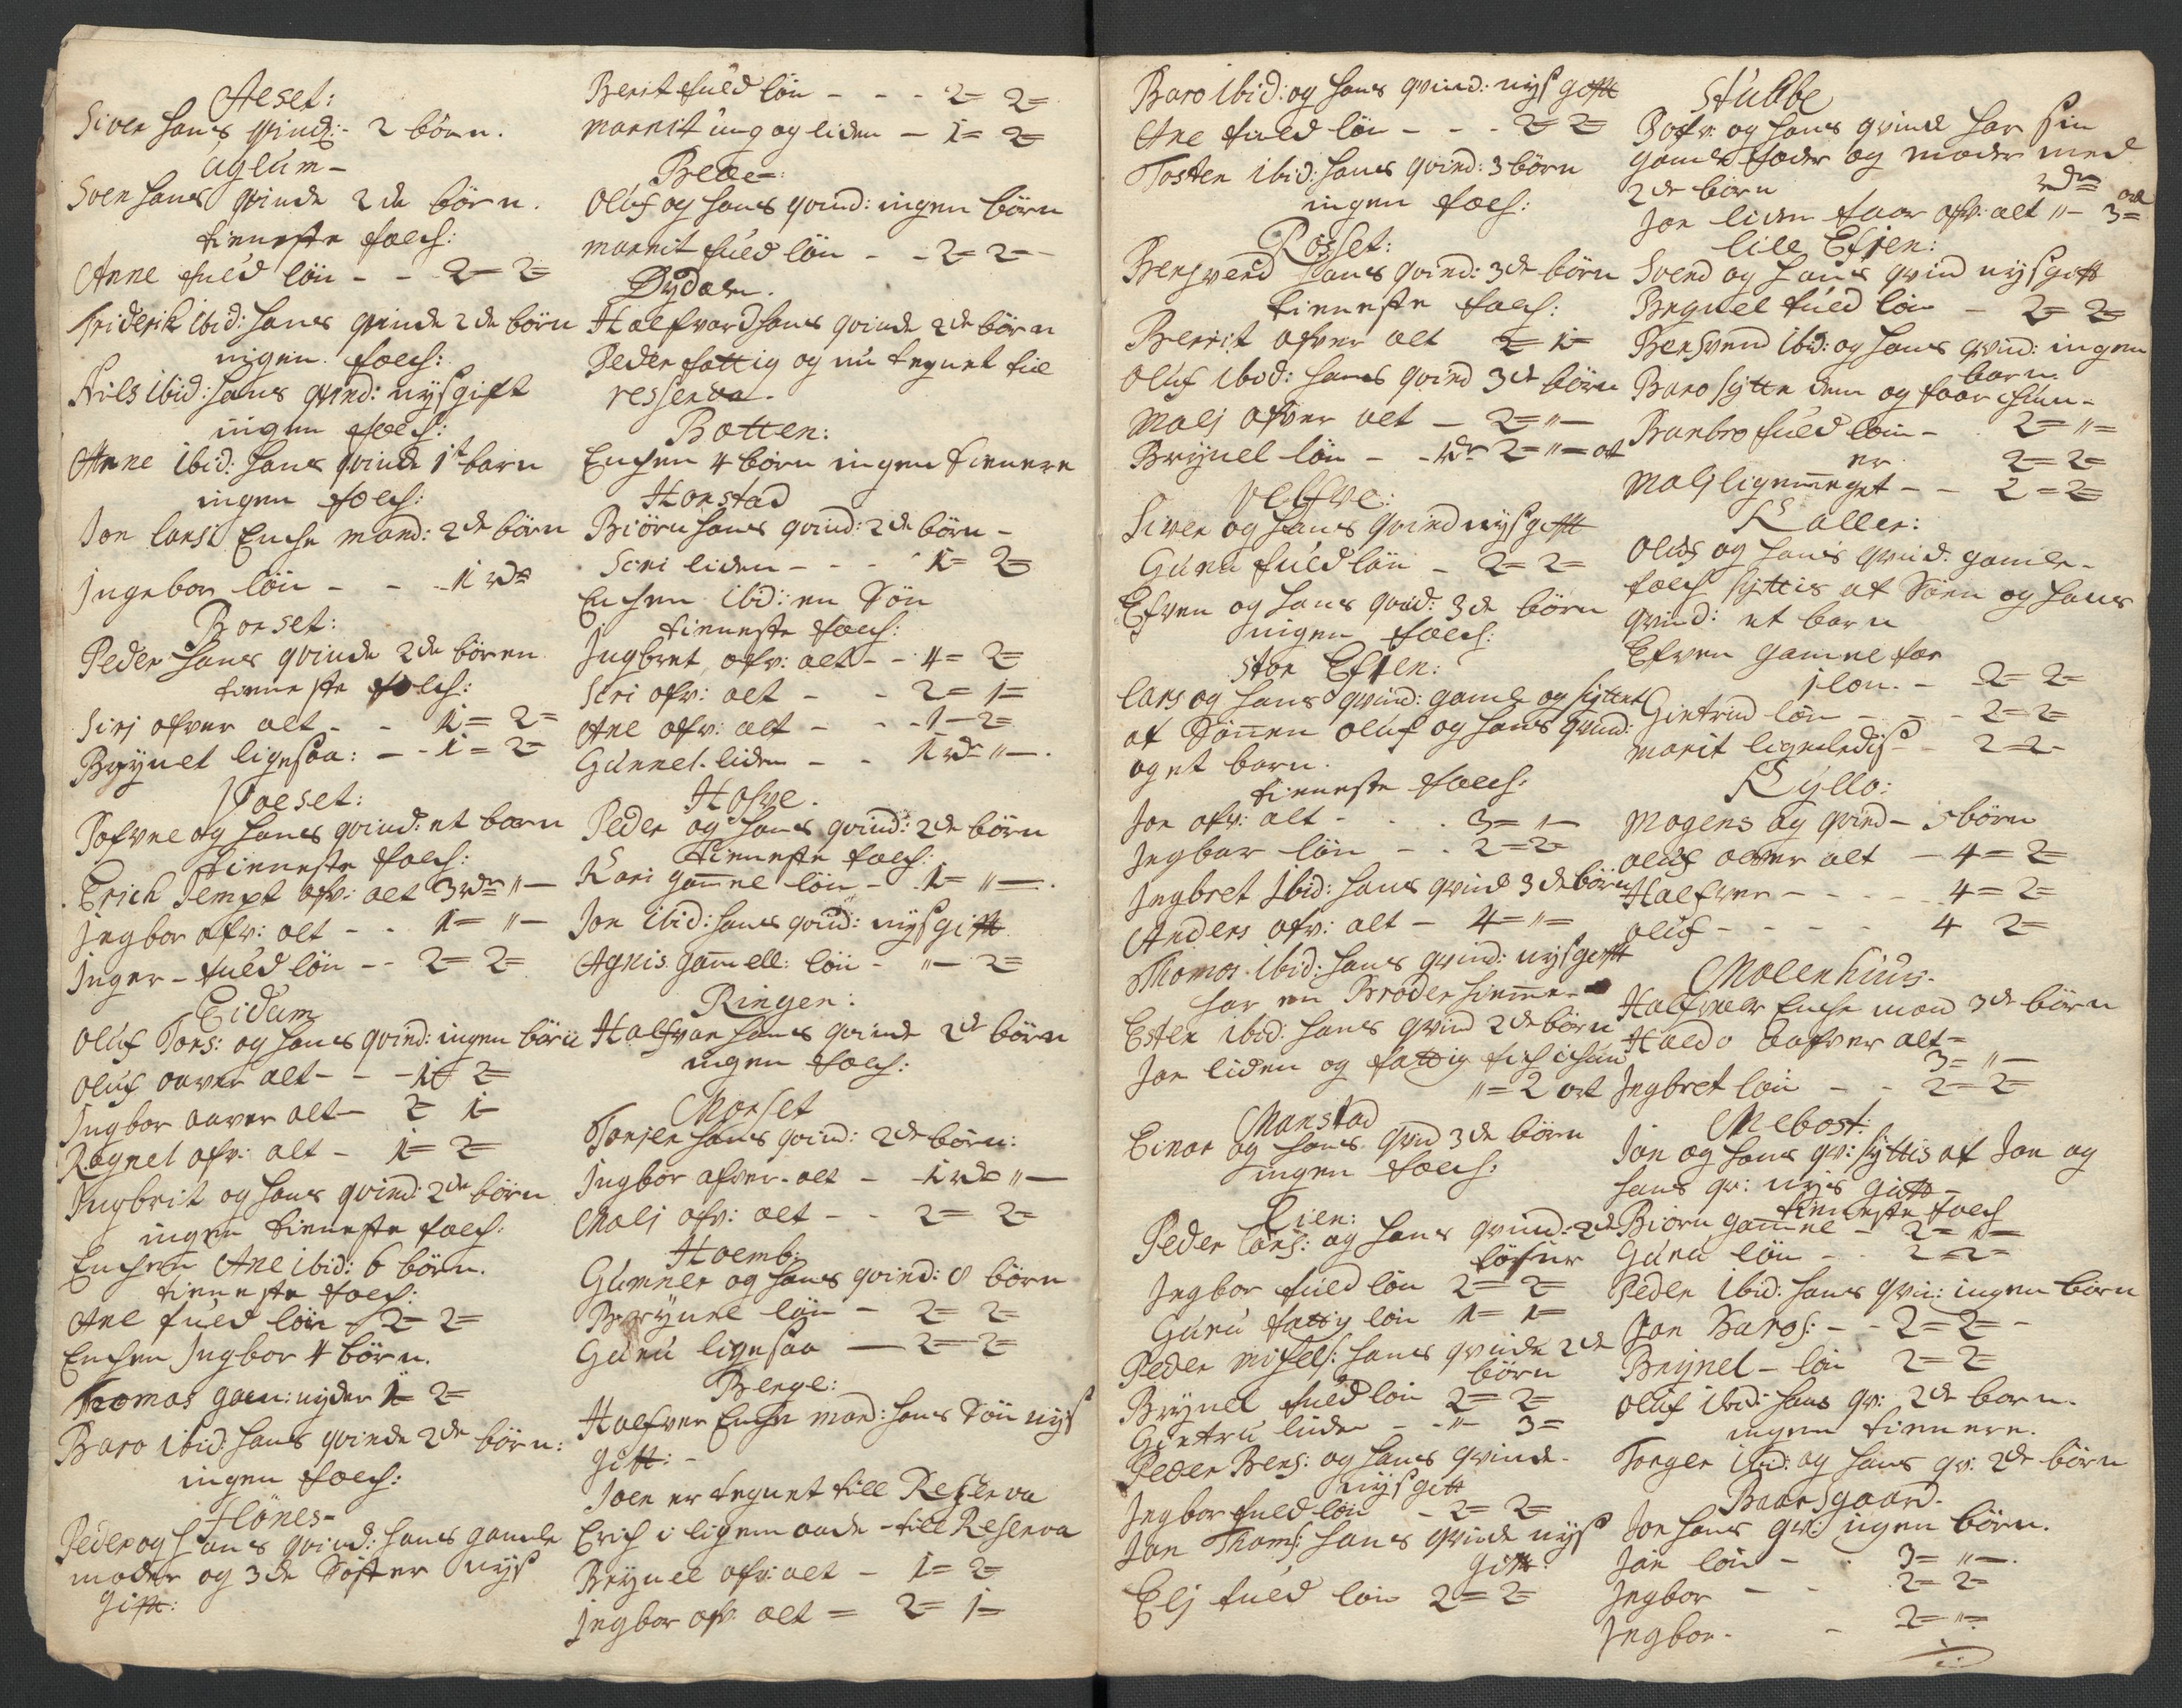 Aeset:
Siver hans qvind: 2 börn.
Uglum -
Sven hans qvinde 2de börn.
tieneste folch:
Anne fuld lön - - 2= 2=
Friderik ibid: hans qvinde 2de börn
ingen folch:
Nils ibid: hans qvind: nys gift
ingen folch:
Arne ibid: hans qvinde 1t barn
ingen folch:
Jon Lars: Enche mand: 2de börn
Ingebor lön - - - 1 rdr
Borset:
Peder hans qvinde 2de börn
tieneste folch:
Siri ofver alt - - 1= 2=
Brynel ligesaa: - - 1= 2=
og hans qvind: et barn
tieneste folch:
Erich Jempt ofv: alt 3 rdr "-
Ingbor ofv: alt - - 1= "-
Inger - fuld lön - - 2= 2=
Eidum
Oluf Tors: og hans qvind: ingen börn
Oluf over alt - - - 1= 2=
Ingbor over alt - 2= 1=
Ragnel ofv: alt - 1= 2=
Ingbrit og hans qvind: 2de börn
ingen tieneste folch:
Enchen Ane ibid: 6 börn.
tieneste folch:
Ane fuld lön - 2= 2=
Enchen Ingbor 4 börn.
Tomas gam: nyder 1= 2=
Baro ibid: hans qvinde 2de börn:
ingen folch:
Flönes -
Peder og hans qvind: hans gamle
moder og 3de Söster nys
gift:
Berit fuld lön - - - 2= 2=
Marrit ung og liden - 1= 2=
Oluf og hans qvind: ingen börn
Marrit fuld lön - - 2= 2=
Dydalen.
Halfvard hans qvinde 2de börn
Peder fattig og nu tegnet till
resserva.
Botten:
Enchen 4 börn ingen tienere
Horstad
Biörn hans qvind: 2de börn -
Siri liden - - - 1= 2=
Enchen ibid: en Sön
tieneste folch:
Ingbret, ofv: alt - - 4= 2=
Siri ofv: alt - - 2= 1=
Ane ofv: alt - - - 1= 2=
Gunnel. liden - - 1 rdr "-.
Hofve.
Peder og hans qvind: 2de börn
tieneste folch:
Kari gamel lön - 1= "-.
Jon ibid: hans qvind: nys gift
Agnis gamell: lön - "- 2=
Ringen:
Halfvar hans qvinde 2de börn
ingen folch:
Morset
Torger hans qvind: 2de börn:
Ingbor ofver. alt - 1 rdr "-
Malj ofv: alt - - 2= 2=
Hoemb:
Gunner og hans qvind: 8 börn
Brynel lön - 2= 2=
Guru ligesaa - 2= 2=
Berge:
Halfver Enche mand: hans Sön nys
gift: -
Joen er tegnet till Reserva
Erich i ligemaade - till Reserva
Brynel ofv: alt - 1= 2=
Ingbor ofv: alt = 2= 1=
Baro ibid: og hans qvind: nys gift
Ane fuld lön - - - 2= 2=
Tosten ibid: hans qvind: 3 börn
ingen folch:
Rosset:
Bersvend hans qvind: 3de börn
tieneste folch:
Berrit ofver alt 2= 1=
Oluf ibid: hans qvind 3de börn
Malj ofver alt - 2= "-
Brynel lön - - rdr 2= "- ort
Velfve:
Siver og hans qvind nys gift
Guru fuld lön - 2= 2=
Efven og hans qvind: 3de börn
ingen folch:
Stor Efien:
Lars og hans qvind: gamle og syttet
af Sönnen Oluf og hans qvind:
og et barn.
tieneste folch:
Jon ofv: alt - - - 3= "-
Ingbor lön - - 2= 2=
Ingbret ibid: hans qvind 3de börn
Anders ofv: alt - 4= "=
Thomas ibid: hans qvind: nys gift
har en Broder hieme -
Esten ibid: hans qvind 2de börn
Jon liden og fattig fich ichun
"= 2 ort
Manstad
Einar og hans qvind 3de börn
ingen folch:
Lien:
Peder Lars: og hans qvind: 2de
Ingbor fuld lön 2= 2=
Guru fattig lön 1= 1=
Peder Michels: hans qvinde 2de
börn
Brynel fuld lön 2= 2=
Giertru liden - - "- 3=
Peder Bers: og hans qvinde -
nys gift
Ingbor fuld lön - 2= 2=
Jon Thoms: hans qvinde nys
gift:
Elj fuld lön 2= 2=
Stubbe
og hans qvinde har sin
gamle fader og moder med
2de börn
rdr ort
Jon liden faar ofv: alt "- 3=
Lille Efien:
Svend og hans qvind nys gift
Brynel fuld lön - 2= 2=
Bersvend ibid: og hans qvind: ingen
barn.
Baro sytte dem og faar ichun -
Barbro fuld lön - 2= "=
er 2= 2=
Malj ligemeget - - 2= 2=
Kaller:
Oluf og hans qvind: gamle -
folch syttis af Sönn og hans
qvind: et barn
Efven gamel for
lön. - 2= 2=
Giertrud lön - - - 2= 2=
Marit ligeledis - - 2= 2-
Kyllo:
Mogens og qvind - 5 börn
Oluf over alt - 4= 2=
Halfver - - - - 4= 2=
Oluf - - - - 4 2=
Mollenhuus.
Halfver Enche mand 3de börn
Haldo aafver alt -
3= "-
Ingbret lön - - 2= 2=
Mebost:
Jon og hans qv: syttis af Jon og
hans qv: nys gift -
tieneste folch
Biörn gammel - 2= 1=
Guru lön - - 2= 2=
Peder ibid: hans qvin: ingen börn
Jon Baros: - - 2= 2= -
Brynel - lön 2= 2=
Oluf ibid: hans qv: 2de barn.
ingen tienere.
Torger ibid: og hans qv: 2de börn
Baarsgaard.
Jon hans qv: ingen börn.
Jon lön - - 3= "-.
Ingbor - - 2= 2=
Ingbor - - 2= "=